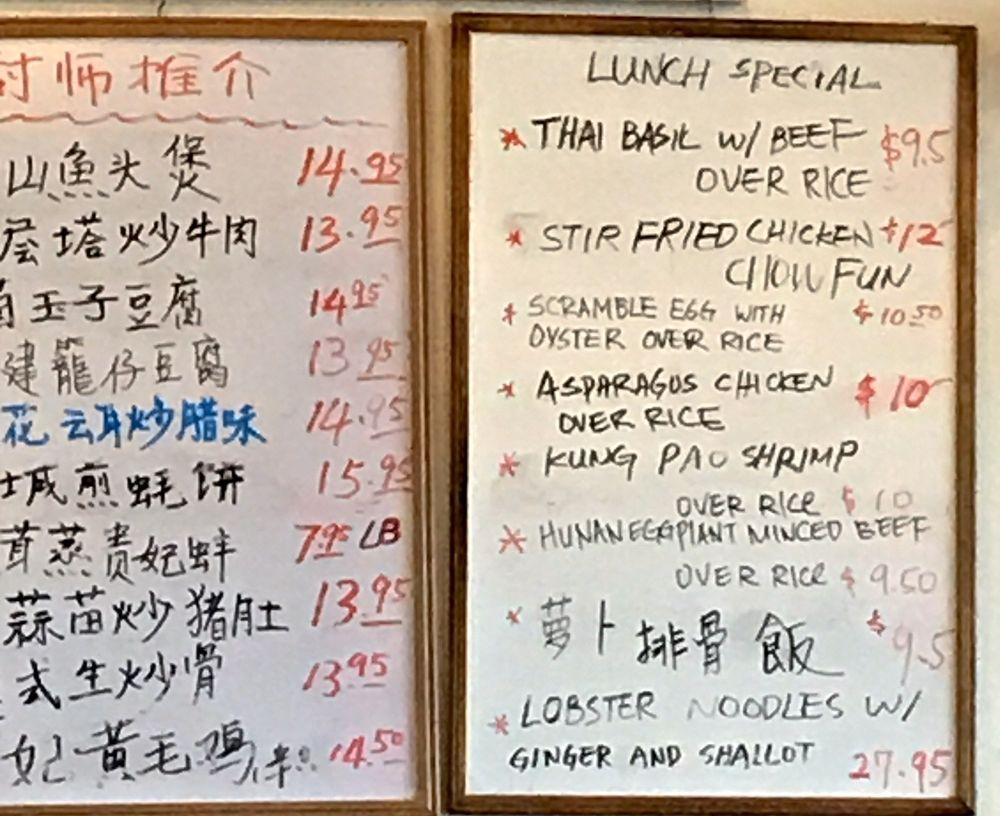 师推介
山魚头煲 14.95
塔炒牛肉 13.95
玉子豆腐 14.95
建籠仔豆腐 13.95
花云耳炒腊味 14.95
城煎蚝饼 15.95
茸蒸贵妃蚌 7.95 LB
蒜苗炒猪肚 13.95
式生炒骨 13.95
妃黄毛鸡 14.50
LUNCH SPECIAL
* THAI BASIL W/ BEEF $9.5
OVER RICE
* STIR FRIED CHICKEN $12
CHOW FUN
* SCRAMBLE EGG WITH $10.50
OYSTER OVER RICE
* ASPARAGUS CHICKEN $10
OVER RICE
* KUNG PAO SHRIMP
OVER RICE $10
* HUNAN EGGPLANT MINCED BEEF
OVER RICE $9.50
* 萝卜排骨飯 $9.5
* LOBSTER NOODLES W/
GINGER AND SHALLOT 27.95